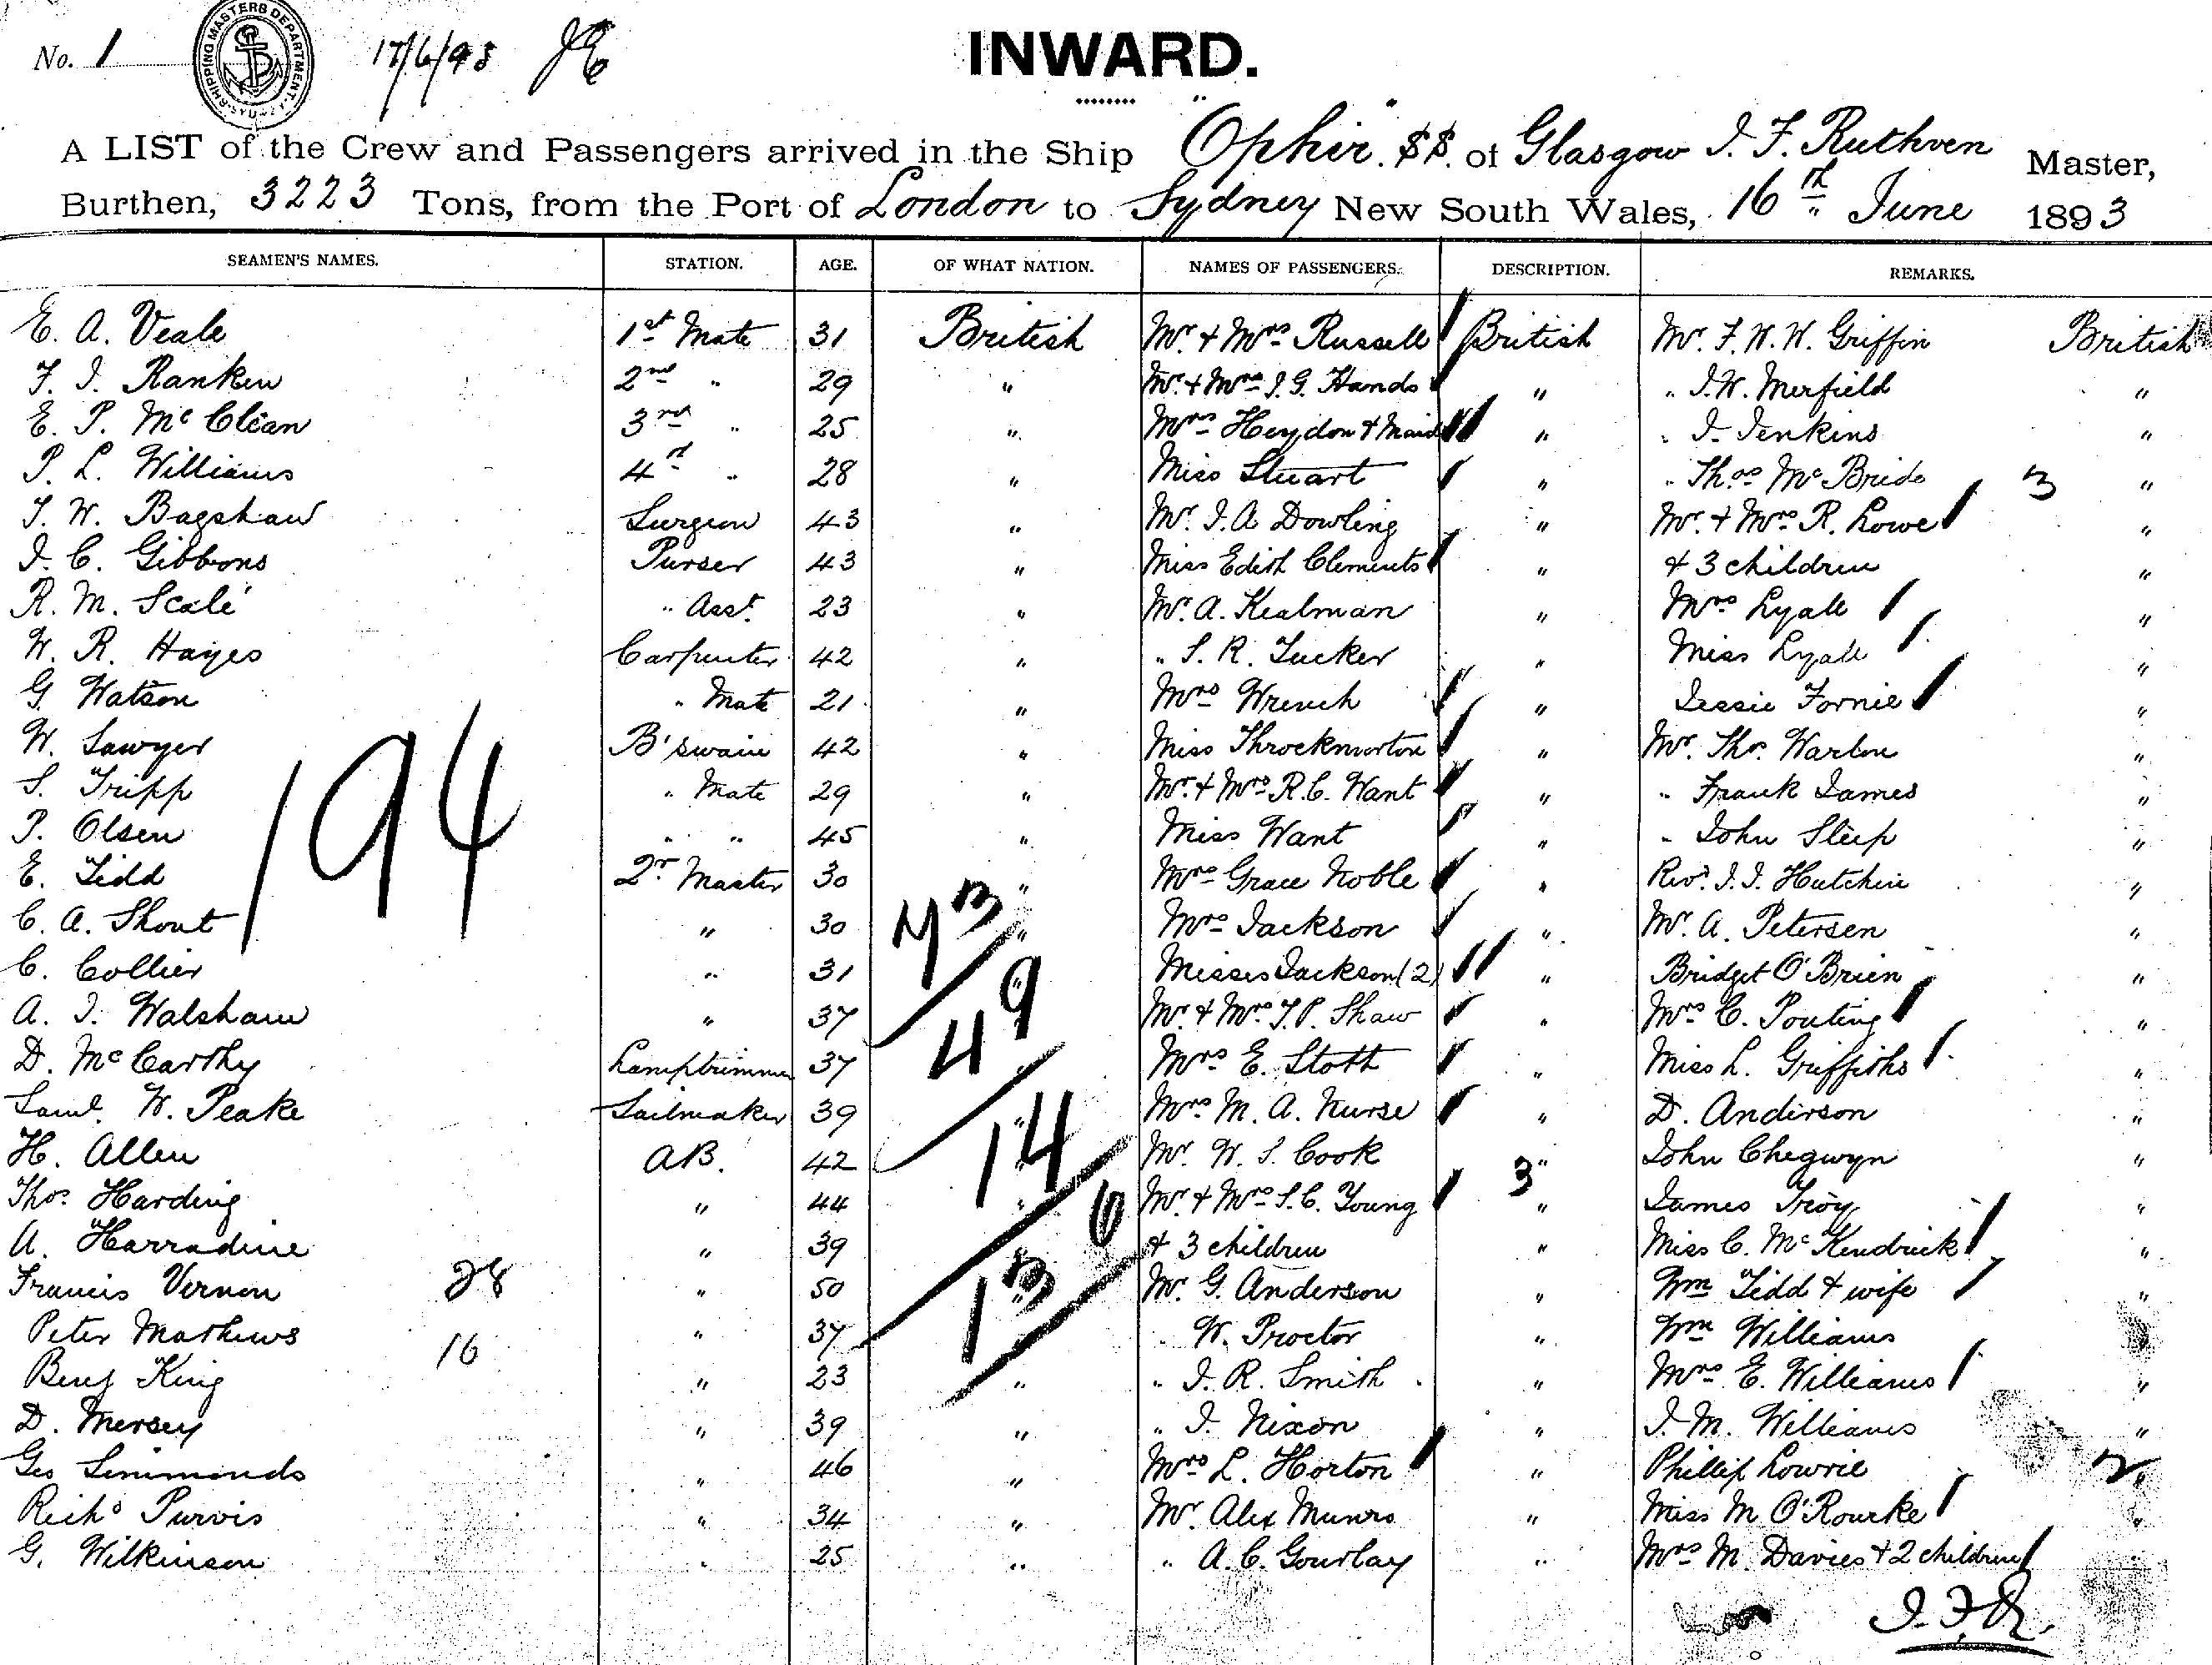 No. 1
SHIPPING MASTERS DEPARTMENT
17/6/93
INWARD.
A LIST of the Crew and Passengers arrived in the Ship Ophir. SS. of Glasgow J. F. Ruthven Master,
Burthen, 3223 Tons, from the Port of London to Sydney New South Wales, 16th June 1893
SEAMEN'S NAMES. STATION. AGE. OF WHAT NATION. NAMES OF PASSENGERS. DESCRIPTION. REMARKS.
E. A. Veale 1st Mate 31 British Mr. & Mrs Russell British Mr. F. W. W. Griffin British
F. J. Ranken 2nd " 29 " Mr. & Mrs J. G. Hands " " J. W. Merfield "
E. P. McClean 3rd " 25 " Mrs Heydon & Maid " " J. Jenkins "
P. L. Williams 4th " 28 " Miss Stuart " " Thos McBride 3 "
T. W. Bagshaw Surgeon 43 " Mr. J. A Dowling " Mr. & Mrs R. Lowe "
J. C. Gibbons Purser 43 " Miss Edith Clements " & 3 children "
R. M. Scale " Asst. 23 " Mr. A. Kealman " Mrs Lyall "
W. R. Hayes Carpenter 42 " " S. R. Tucker " Miss Lyall "
G. Watson " Mate 21 " Mrs Wrench " Jessie Fornie "
W. Sawyer B'swain 42 " Miss Throckmorton " Mr. Thos. Warlon "
S. Tripp " Mate 29 " Mr. & Mrs R. C. Want " " Frank James "
P. Olsen " " 45 " Miss Want " " John Sleep "
194
E. Tidd 2r Master 30 " Mrs Grace Noble " Revd J. J. Hutchin "
C. A. Shout " 30 " Mrs Jackson " Mr. A. Petersen "
C. Collier " 31 " Misses Jackson (2) " Bridget O'Brien "
A. J. Walshaw " 37 " Mr. & Mrs T. P. Shaw " Mrs C. Pouting "
49
D. McCarthy Lamptrimmer 37 " Mrs E. Stott " Miss L. Griffiths "
Saml. W. Peake Sailmaker 39 " Mrs M. A. Nurse " D. Anderson "
14
H. Allen AB. 42 " Mr. W. S. Cook 3 " John Chegwyn "
Thos. Harding " 44 " Mr. & Mrs S. C. Young " James Troy "
6
A. Harradine " 39 " & 3 children " Miss C. McKendrick "
Francis Vernon 28 " 50 " Mr. G. Anderson " Wm Tidd & wife "
13
Peter Mathews 16 " 37 " " W. Proctor " Wm Williams "
Benj King " 23 " " J. R. Smith " Mrs E. Williams "
D. Mersey " 39 " " J. Nixon " J. M. Williams "
Geo Simmonds " 46 " Mrs L. Horton " Phillip Lowrie 2 "
Richd Purvis " 34 " Mr. Alex Munro " Miss M O'Rourke "
G. Wilkinson " 25 " " A. C. Gourlay " Mrs M. Davies & 2 children
J. F. R.